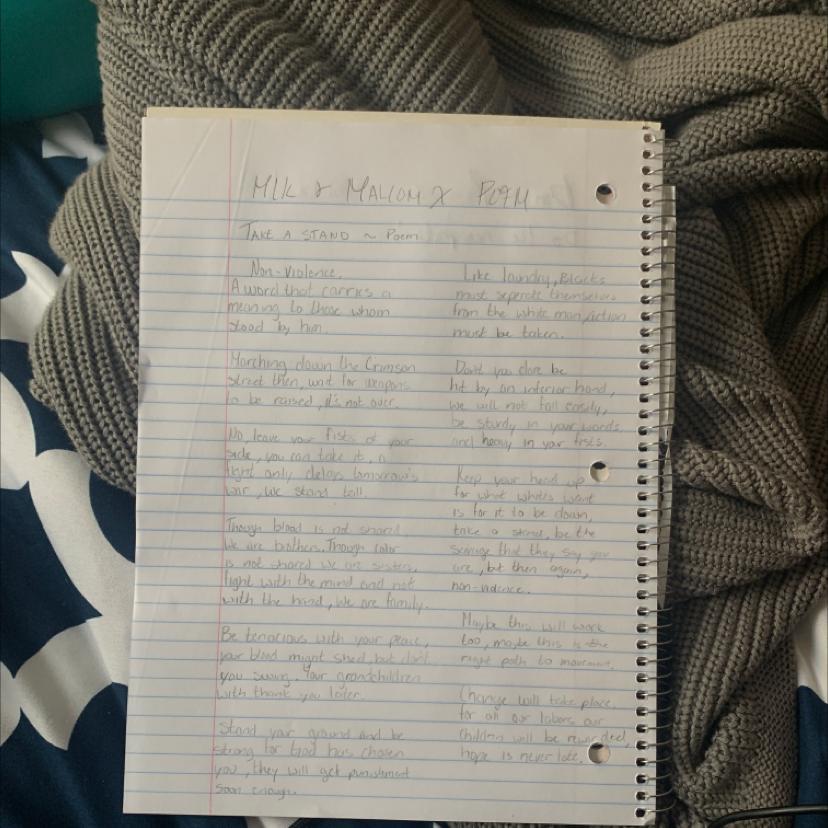 MLK & MALCOM X POEM
TAKE A STAND ~ Poem
Non-Violence.
A word that carries a
meaning to those whom
stood by him.
Marching down the Crimson
street then, wait for weapons
to be raised, it's not over.
No, leave your fists at your
side, you can take it, a
fight only delays tomorrow's
war, We stand tall.
Though blood is not shared
We are brothers. Though color
is not shared we are sisters,
fight with the mind and not
with the hand, We are family.
Be tenacious with your peace,
your blood might shed, but don't
you swing. Your grandchildren
with thank you later.
Stand your ground and be
strong for God has chosen
you, they will get punishment
soon enough.
Like laundry, Blacks
must seperate themselves
from the white man, action
must be taken.
Don't you dare be
hit by an inferior hand,
we will not fall easily,
be sturdy in your words
and heavy in your fists.
Keep your head up
for what whites want
is for it to be down,
take a stand, be the
savage that they say you
are, but then again,
non-violence.
Maybe this will work
too, maybe this is the
right path to movement.
Change will take place
for all our labors our
children will be rewarded,
hope is never late.